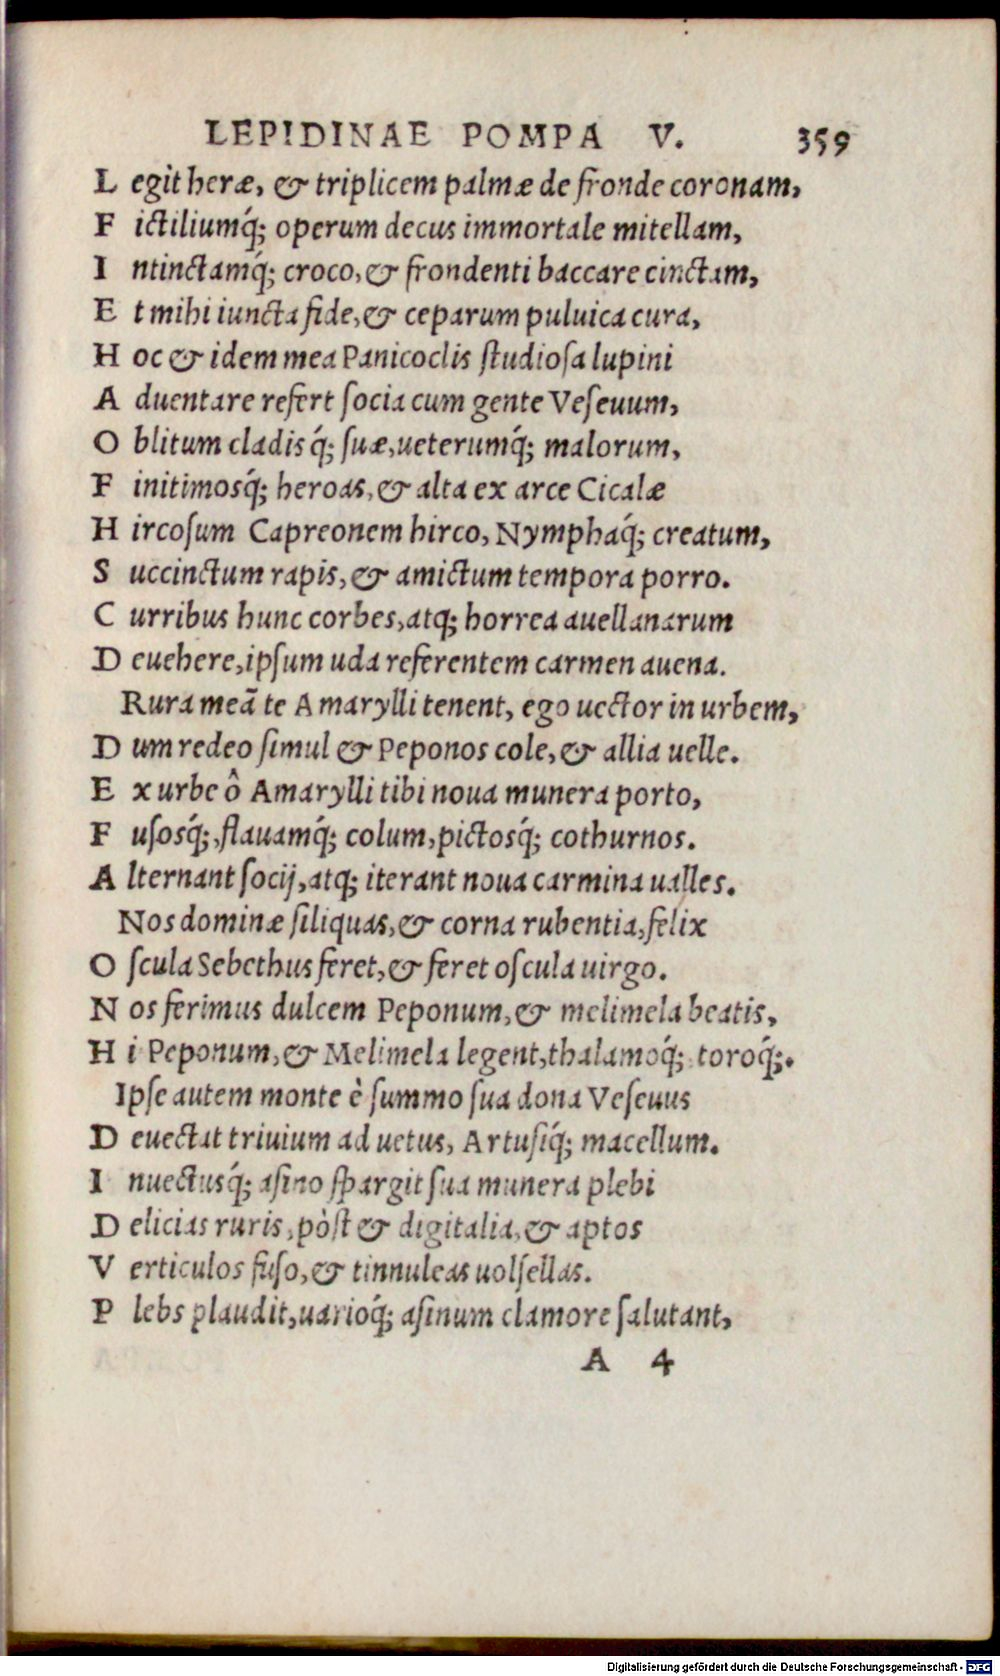 LEPIDINAE POMPA V. 359
L egit heræ, & triplicem palmæ de fronde coronam,
F ictiliumq́; operum decus immortale mitellam,
I ntinctamq́; croco, & frondenti baccare cinctam,
E t mihi iuncta fide, & ceparum puluica cura,
H oc & idem mea Panicoclis ſtudioſa lupini
A duentare refert ſocia cum gente Veſeuum,
O blitum cladis q́; ſuæ, ueterumq́; malorum,
F initimosq́; heroas, & alta ex arce Cicalæ
H ircoſum Capreonem hirco, Nymphaq́; creatum,
S uccinctum rapis, & amictum tempora porro.
C urribus hunc corbes, atq; horrea auellanarum
D euehere, ipſum uda referentem carmen auena.
Rura meã te Amarylli tenent, ego uector in urbem,
D um redeo ſimul & Peponos cole, & allia uelle.
E x urbe ô Amarylli tibi noua munera porto,
F uſosq́;, flauamq́; colum, pictosq́; cothurnos.
A lternant ſocij, atq; iterant noua carmina ualles.
Nos dominæ ſiliquas, & corna rubentia, felix
O ſcula Sebethus feret, & feret oſcula uirgo.
N os ferimus dulcem Peponum, & melimela beatis,
H i Peponum, & Melimela legent, thalamoq́; toroq́;.
Ipſe autem monte è ſummo ſua dona Veſeuus
D euectat triuium ad uetus, Artuſiq́; macellum.
I nuectusq́; aſino ſpargit ſua munera plebi
D elicias ruris, pòſt & digitalia, & aptos
V erticulos fuſo, & tinnuleas uolſellas.
P lebs plaudit, uarioq́; aſinum clamore ſalutant,
A 4
Digitalisierung gefördert durch die Deutsche Forschungsgemeinschaft - DFG